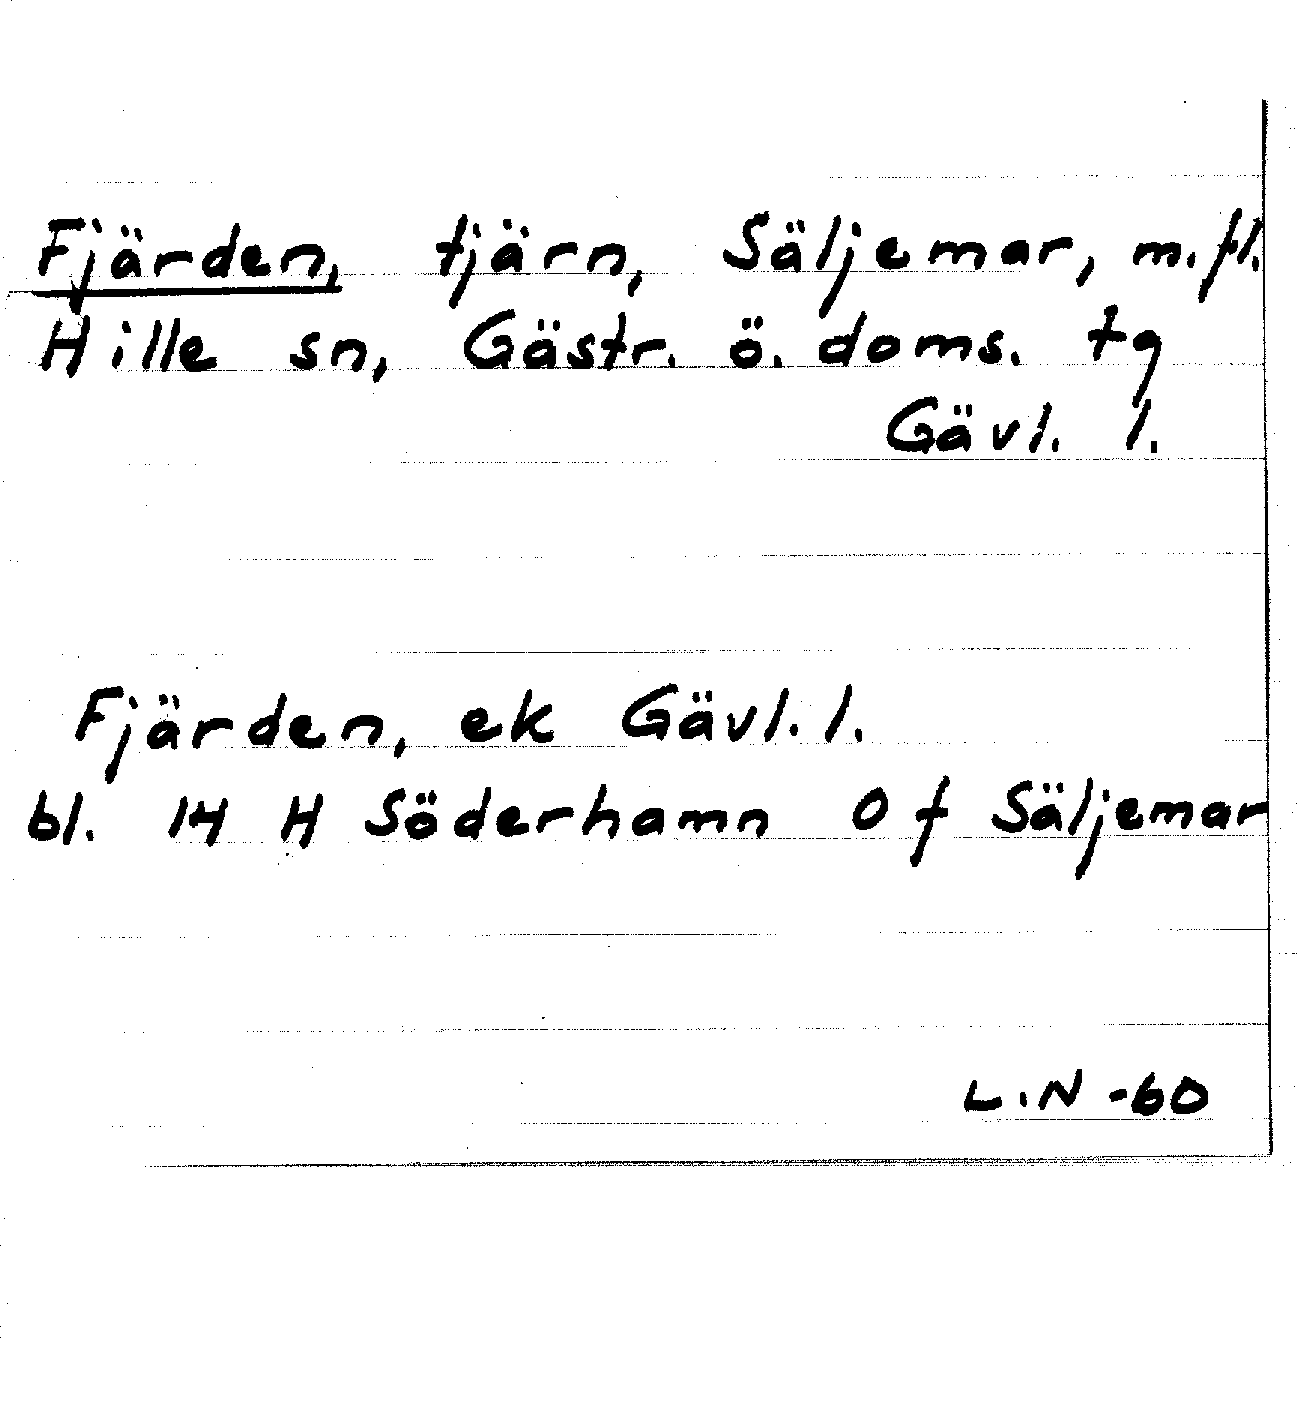 Fjärden, tjärn, Säljemar, m.fl.
Hille sn, Gästr. ö. doms. tg
Gävl. l.
Fjärden, ek Gävl. l.
bl. 14 H Söderhamn 0 f Säljemar
L.N -60